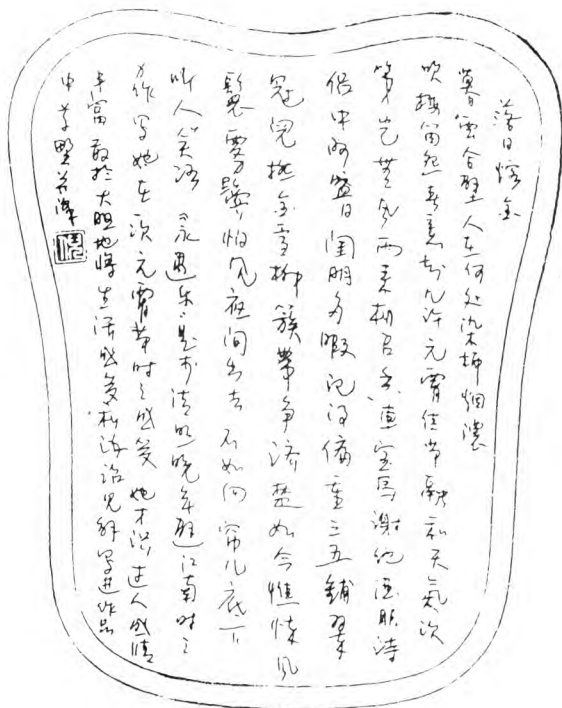 落日熔金
暮云合璧人在何处染柳烟濃
吹梅笛怨春意知几许元宵佳节融和天氣次
第岂無风雨来相召香車宝馬谢他酒朋詩
侣中州盛日闺門多暇记得偏重三五鋪翠
冠兒撚金雪柳簇帶争济楚如今憔悴风
鬟霧鬢怕见夜间出去不如向帘儿底下
听人笑语永遇乐是李清照晚年避江南时之
作写她在一次元宵节时之感受她才洋过人感情
丰富敢於大胆地将生活感受和海语见解写进作品
中